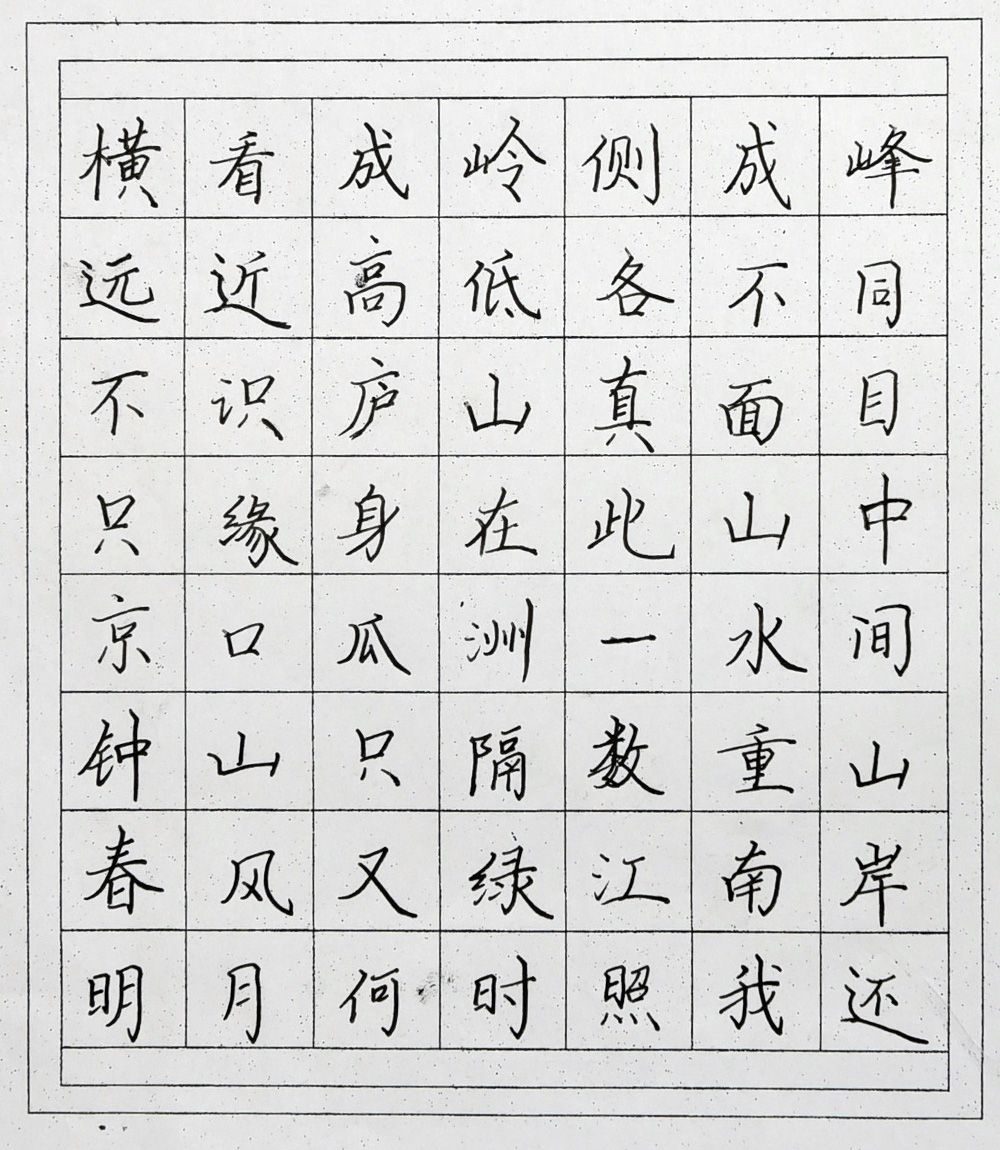 横看成岭侧成峰
远近高低各不同
不识庐山真面目
只缘身在此山中
京口瓜洲一水间
钟山只隔数重山
春风又绿江南岸
明月何时照我还